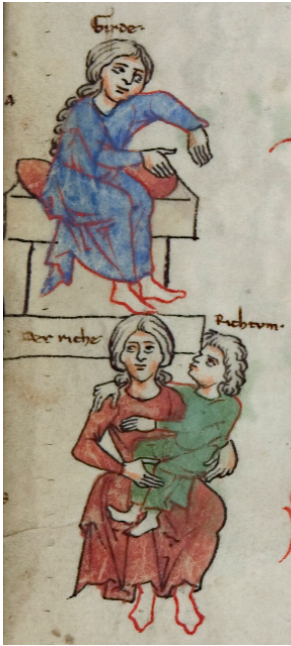 Girde·
Der riche
Richtvm·